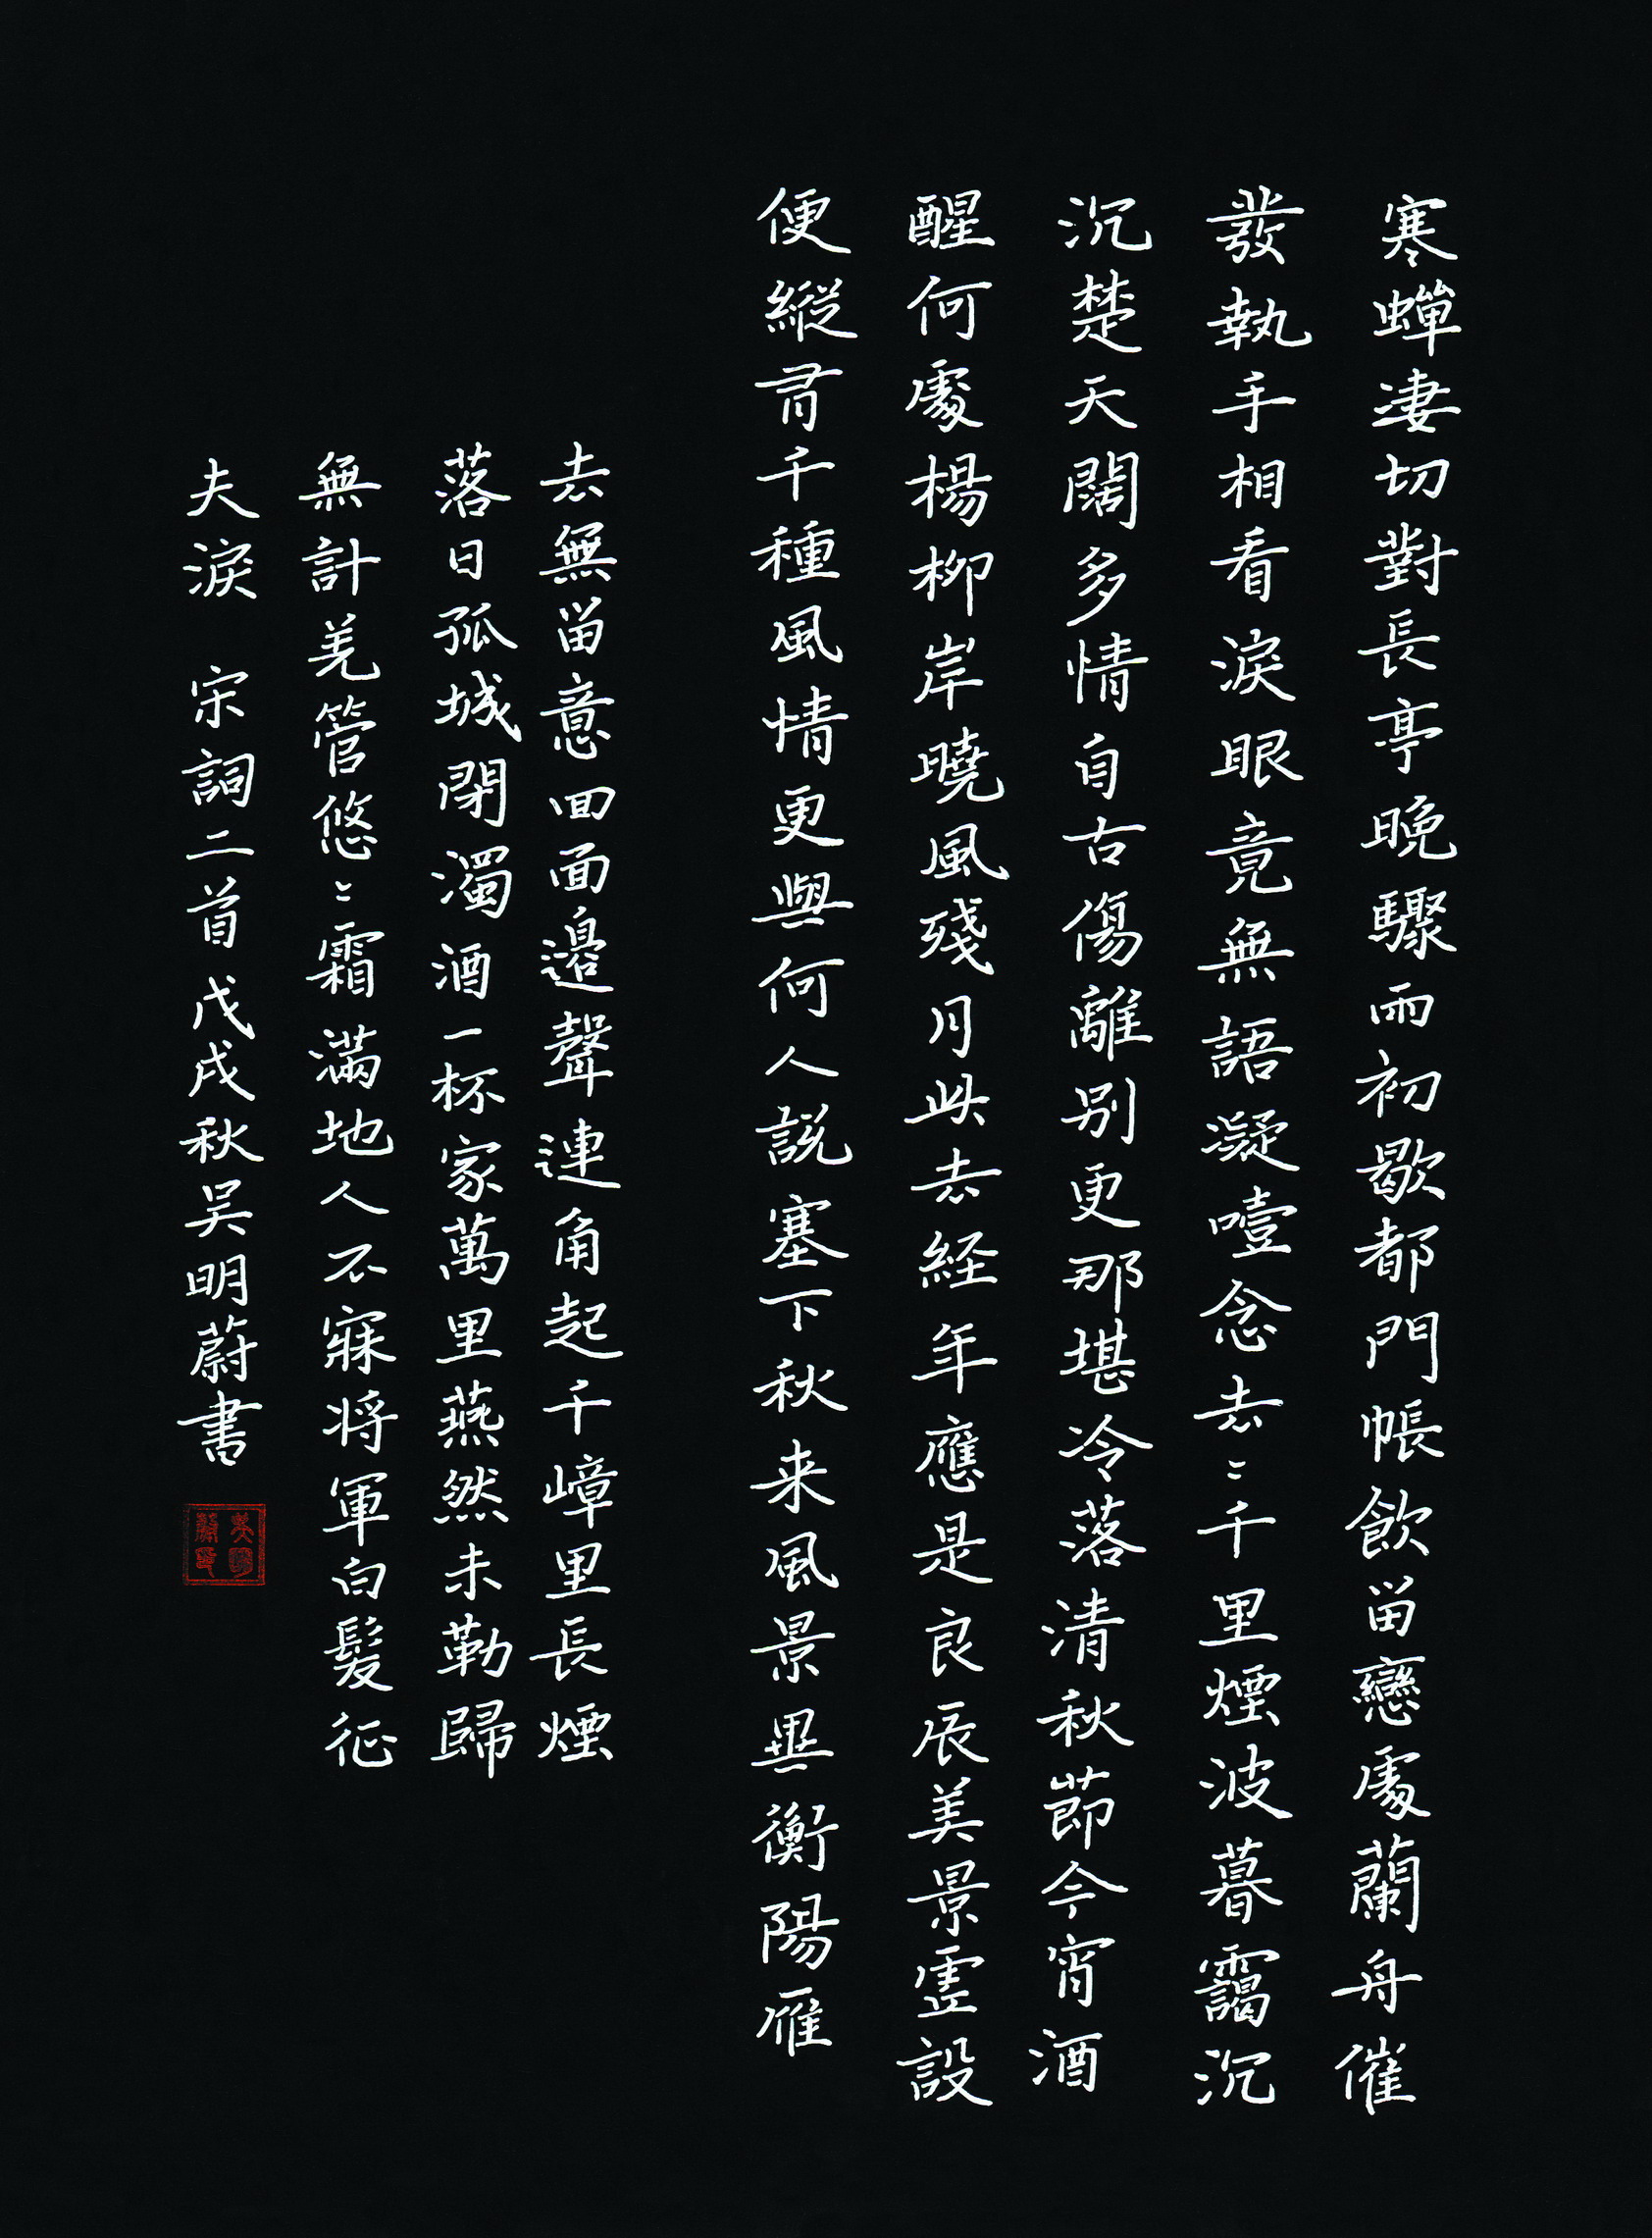 寒蟬凄切對長亭晚驟雨初歇都門帳飲留戀處蘭舟催
發執手相看淚眼竟無語凝噎念去〻千里煙波暮靄沉
沉楚天闊多情自古傷離别更那堪冷落清秋節今宵酒
醒何處楊柳岸曉風殘月此去経年應是良辰美景虛設
便縱有千種風情更與何人説塞下秋来風景異衡陽雁
去無留意四面邊聲連角起千嶂里長煙
落日孤城閉濁酒一杯家萬里燕然未勒歸
無計羌管悠〻霜滿地人不寐将軍白髮征
夫淚 宋詞二首戊戌秋吴明蔚書